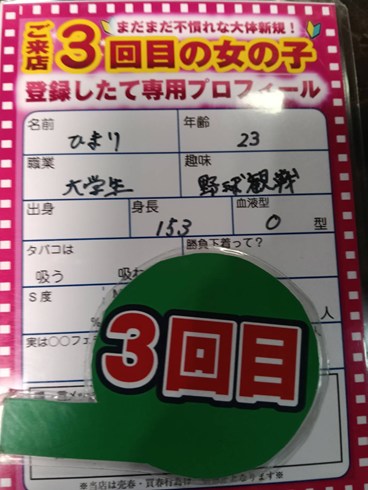 ご来店
まだまだ不慣れな大体新規!
3回目の女の子
登録したて専用プロフィール
名前 ひまり
年齢 23
職業 大学生
趣味 野球観戦
出身
身長 153
血液型 O 型
タバコは 吸う 吸わ
勝負下着って?
S度
%
人
実は○○フェチ
3回目
※当店は売春・買春行為は
となります※